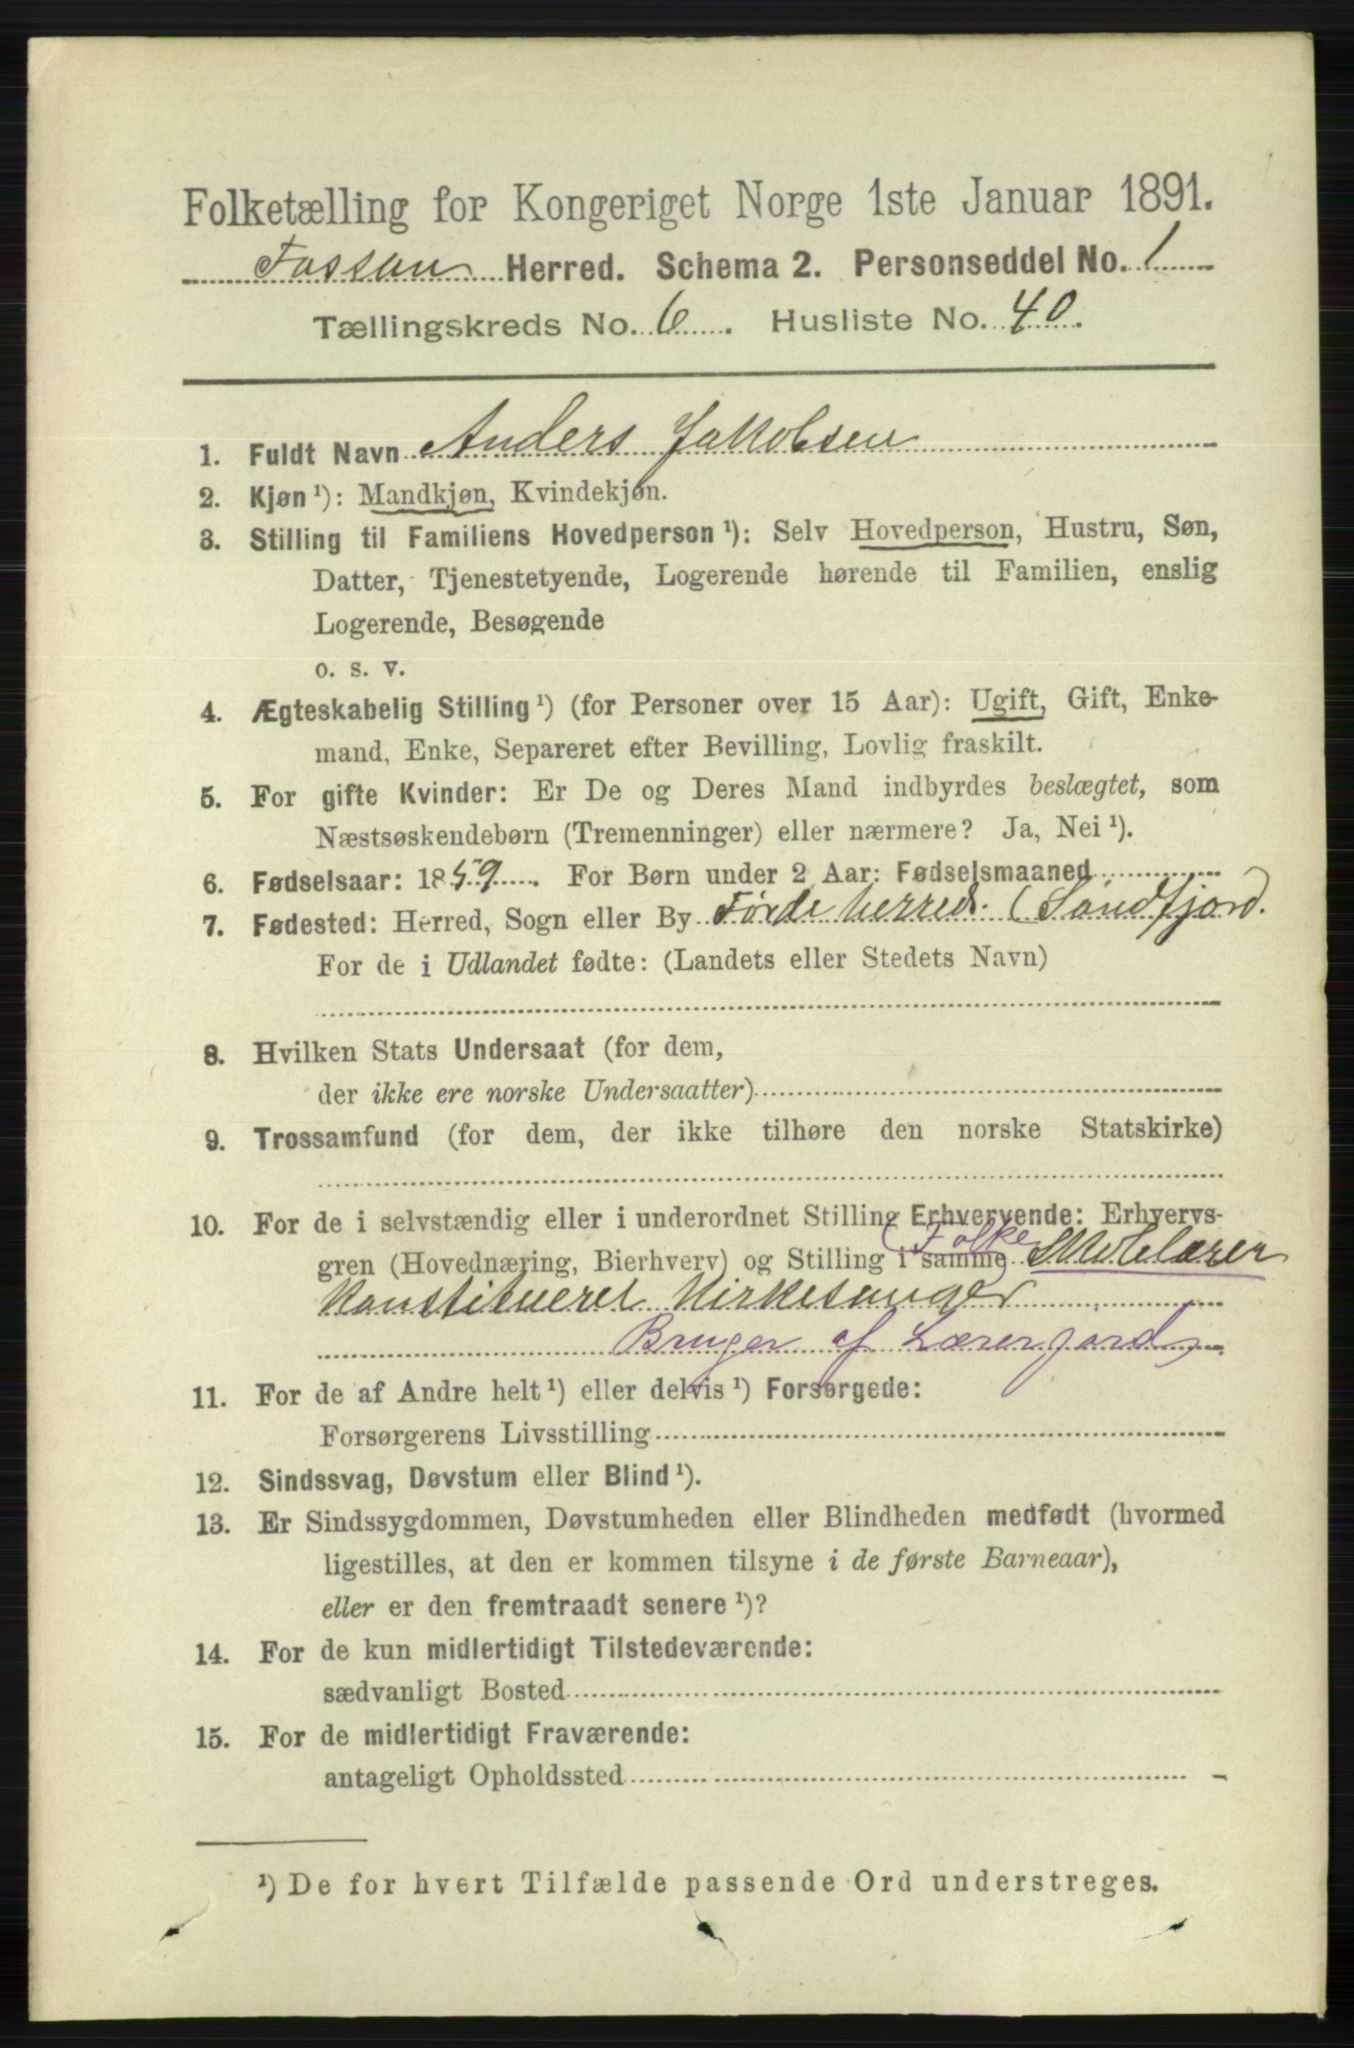 Folketælling for Kongeriget Norge 1ste Januar 1891.
Fossan Herred. Schema 2. Personseddel No. 1
Tællingskreds No. 6. Husliste No. 40.
1. Fuldt Navn Anders Jakobsen
2. Kjøn ¹): Mandkjøn, Kvindekjøn.
3. Stilling til Familiens Hovedperson ¹): Selv Hovedperson, Hustru, Søn,
Datter, Tjenestetyende, Logerende hørende til Familien, enslig
Logerende, Besøgende
o. s. v.
4. Ægteskabelig Stilling ¹) (for Personer over 15 Aar): Ugift, Gift, Enke-
mand, Enke, Separeret efter Bevilling, Lovlig fraskilt.
5. For gifte Kvinder: Er De og Deres Mand indbyrdes beslægtet, som
Næstsøskendebørn (Tremenninger) eller nærmere? Ja, Nei ¹).
6. Fødselsaar: 1859. For Børn under 2 Aar: Fødselsmaaned
7. Fødested: Herred, Sogn eller By Førde herred. (Søndfjord.
For de i Udlandet fødte: (Landets eller Stedets Navn)
8. Hvilken Stats Undersaat (for dem,
der ikke ere norske Undersaatter)
9. Trossamfund (for dem, der ikke tilhøre den norske Statskirke)
10. For de i selvstændig eller i underordnet Stilling Erhvervende: Erhvervs-
gren (Hovednæring, Bierhverv) og Stilling i samme (Folke) Skolelærer
Konstitueret Kirkesanger
Bruger af Lærergård,
11. For de af Andre helt ¹) eller delvis ¹) Forsørgede:
Forsørgerens Livsstilling
12. Sindssvag, Døvstum eller Blind ¹).
13. Er Sindssygdommen, Døvstumheden eller Blindheden medfødt (hvormed
ligestilles, at den er kommen tilsyne i de første Barneaar),
eller er den fremtraadt senere ¹)?
14. For de kun midlertidigt Tilstedeværende:
sædvanligt Bosted
15. For de midlertidigt Fraværende:
antageligt Opholdssted
¹) De for hvert Tilfælde passende Ord understreges.